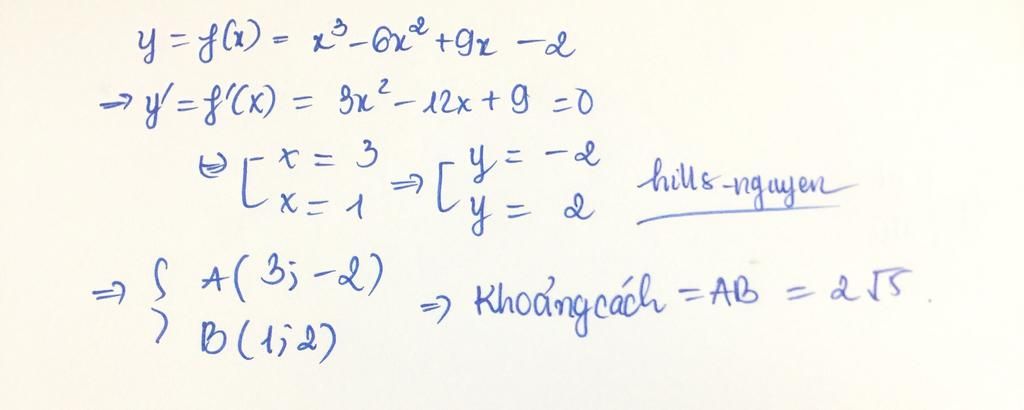 y = f(x) = x³ - 6x² + 9x - 2
⇒ y' = f'(x) = 3x² - 12x + 9 = 0
⇔ [ x = 3 ⇒ [ y = -2
x = 1 y = 2 hills-nguyen
⇒ { A(3; -2) ⇒ Khoảng cách = AB = 2√5.
B(1; 2)